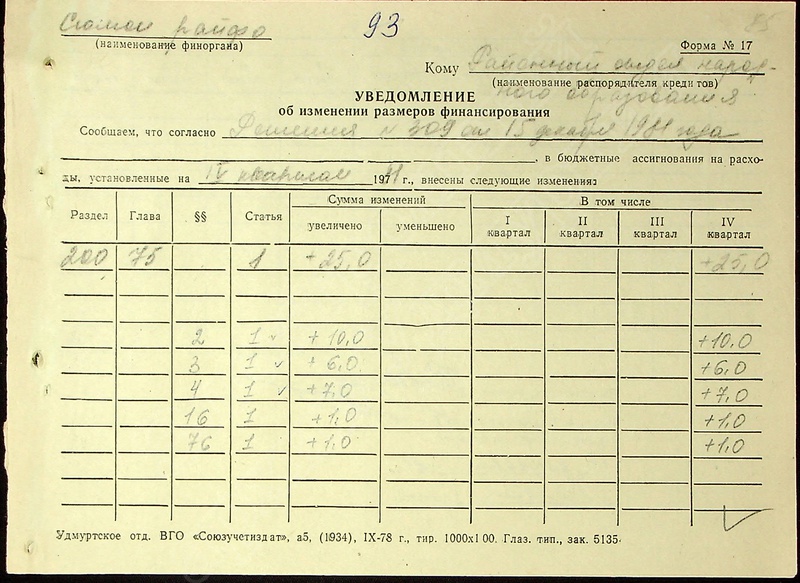 Сюмси райфо 93 85
(наименование финоргана) Форма № 17
Кому Районный отдел народ-
(наименование распорядителя кредитов)
ного образования
УВЕДОМЛЕНИЕ
об изменении размеров финансирования
Сообщаем, что согласно Решения № 309 от 15 декабря 1981 года
, в бюджетные ассигнования на расхо-
ды, установленные на IV квартал 1981 г., внесены следующие изменения:
Раздел Глава §§ Статья Сумма изменений В том числе
увеличено уменьшено I квартал II квартал III квартал IV квартал
200 75 1 +25,0 +25,0
2 1 ✓ +10,0 +10,0
3 1 ✓ +6,0 +6,0
4 1 ✓ +7,0 +7,0
16 1 +1,0 +1,0
76 1 +1,0 +1,0
Удмуртское отд. ВГО «Союзучетиздат», а5, (1934), IX-78 г., тир. 1000х100. Глаз. тип., зак. 5135